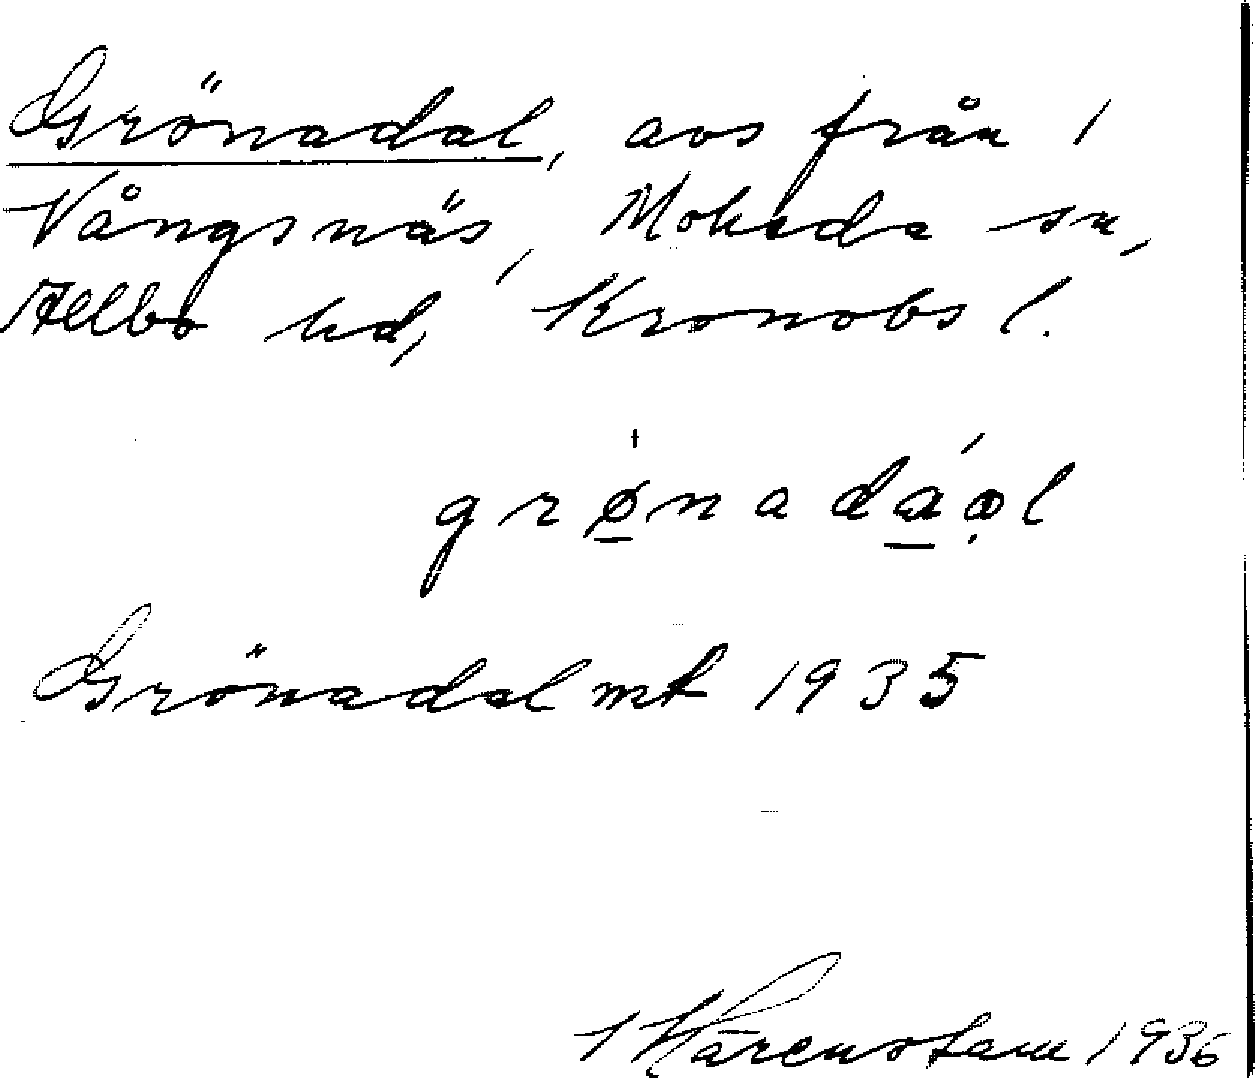 Grönadal, avs från 1
Vångsnäs, Moheda sn,
Allbo hd, Kronobs l.
grønadáọl
Grönadal mt 1935
Härenstam 1936